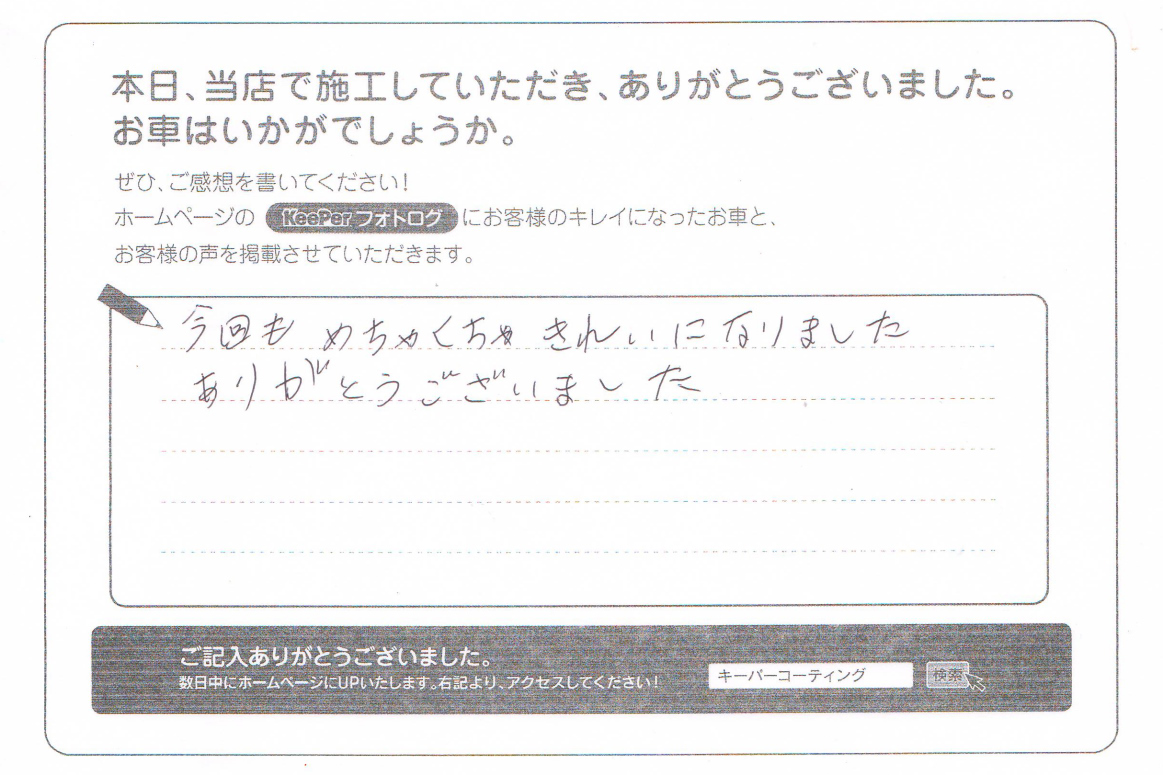 本日、当店で施工していただき、ありがとうございました。
お車はいかがでしょうか。
ぜひ、ご感想を書いてください！
ホームページの KeePer フォトログ にお客様のキレイになったお車と、
お客様の声を掲載させていただきます。
今回も めちゃくちゃ きれいになりました
ありがとうございました
ご記入ありがとうございました。
数日中にホームページにUPいたします。右記より、アクセスしてください！
キーパーコーティング 検索